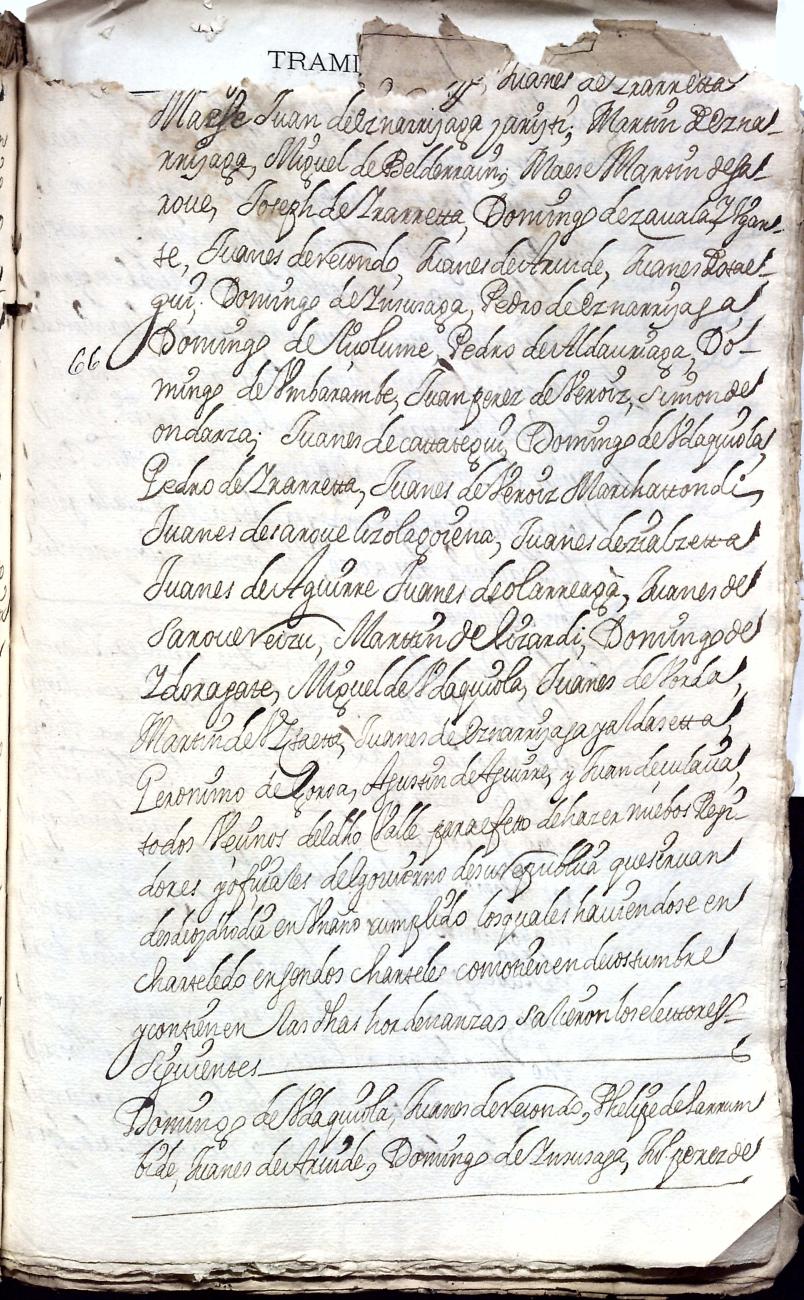 TRAMI
Juanes de Yrarretta
Maese Juan de Oznarrijaga jariști, Martin de Ozna-
rrijaga, Miguel de Belderrain, Maese Martin de Sa-
roue, Joseph de Yrarretta, Domingo de Zavala Ygar-
te, Juanes de Reciondo, Juanes de Aruide, Juanes
gui, Domingo de Ynsusaga, Pedro de Oznarrijaga
66
Domingo de Aluolume, Pedro de Aldauriaga, Do-
mingo de Vmbarambe, Juan perez de Veroiz, Simon de
ondarza, Juanes de cattategui, Domingo de Vdaquiola,
Pedro de Yrarretta, Juanes de Veroiz Marchattondi,
Juanes de saroue lizolagoiena, Juanes de
Juanes de Aguirre Juanes de olarreaga, Juanes de
Saroue veizu, Martin de lizardi, Domingo de
Ydoragate, Miguel de Vdaquiola, Juanes de Vorda,
Martin de Juanes de Oznarrijaga yaldasetta,
Peronimo de Goroa, Agustin de Aguirre, y Juan de culaua,
todos Vecinos del dho Valle para efetto de hazer nuebos Regi-
dores y ofiziales del gouierno de su republica que siruan
desde oy dho dia en Vn año cumplido los quales hauiendose en
charteledo en sendos charteles como tienen de costumbre
y contienen las dhas hordenanzas salieron los electtores
Siguientes
Domingo de Vdaquiola, Juanes de Reciondo, Phelipe de Larrum
bide, Juanes de Aruide, Domingo de Ynsusaga, Ju° perez de